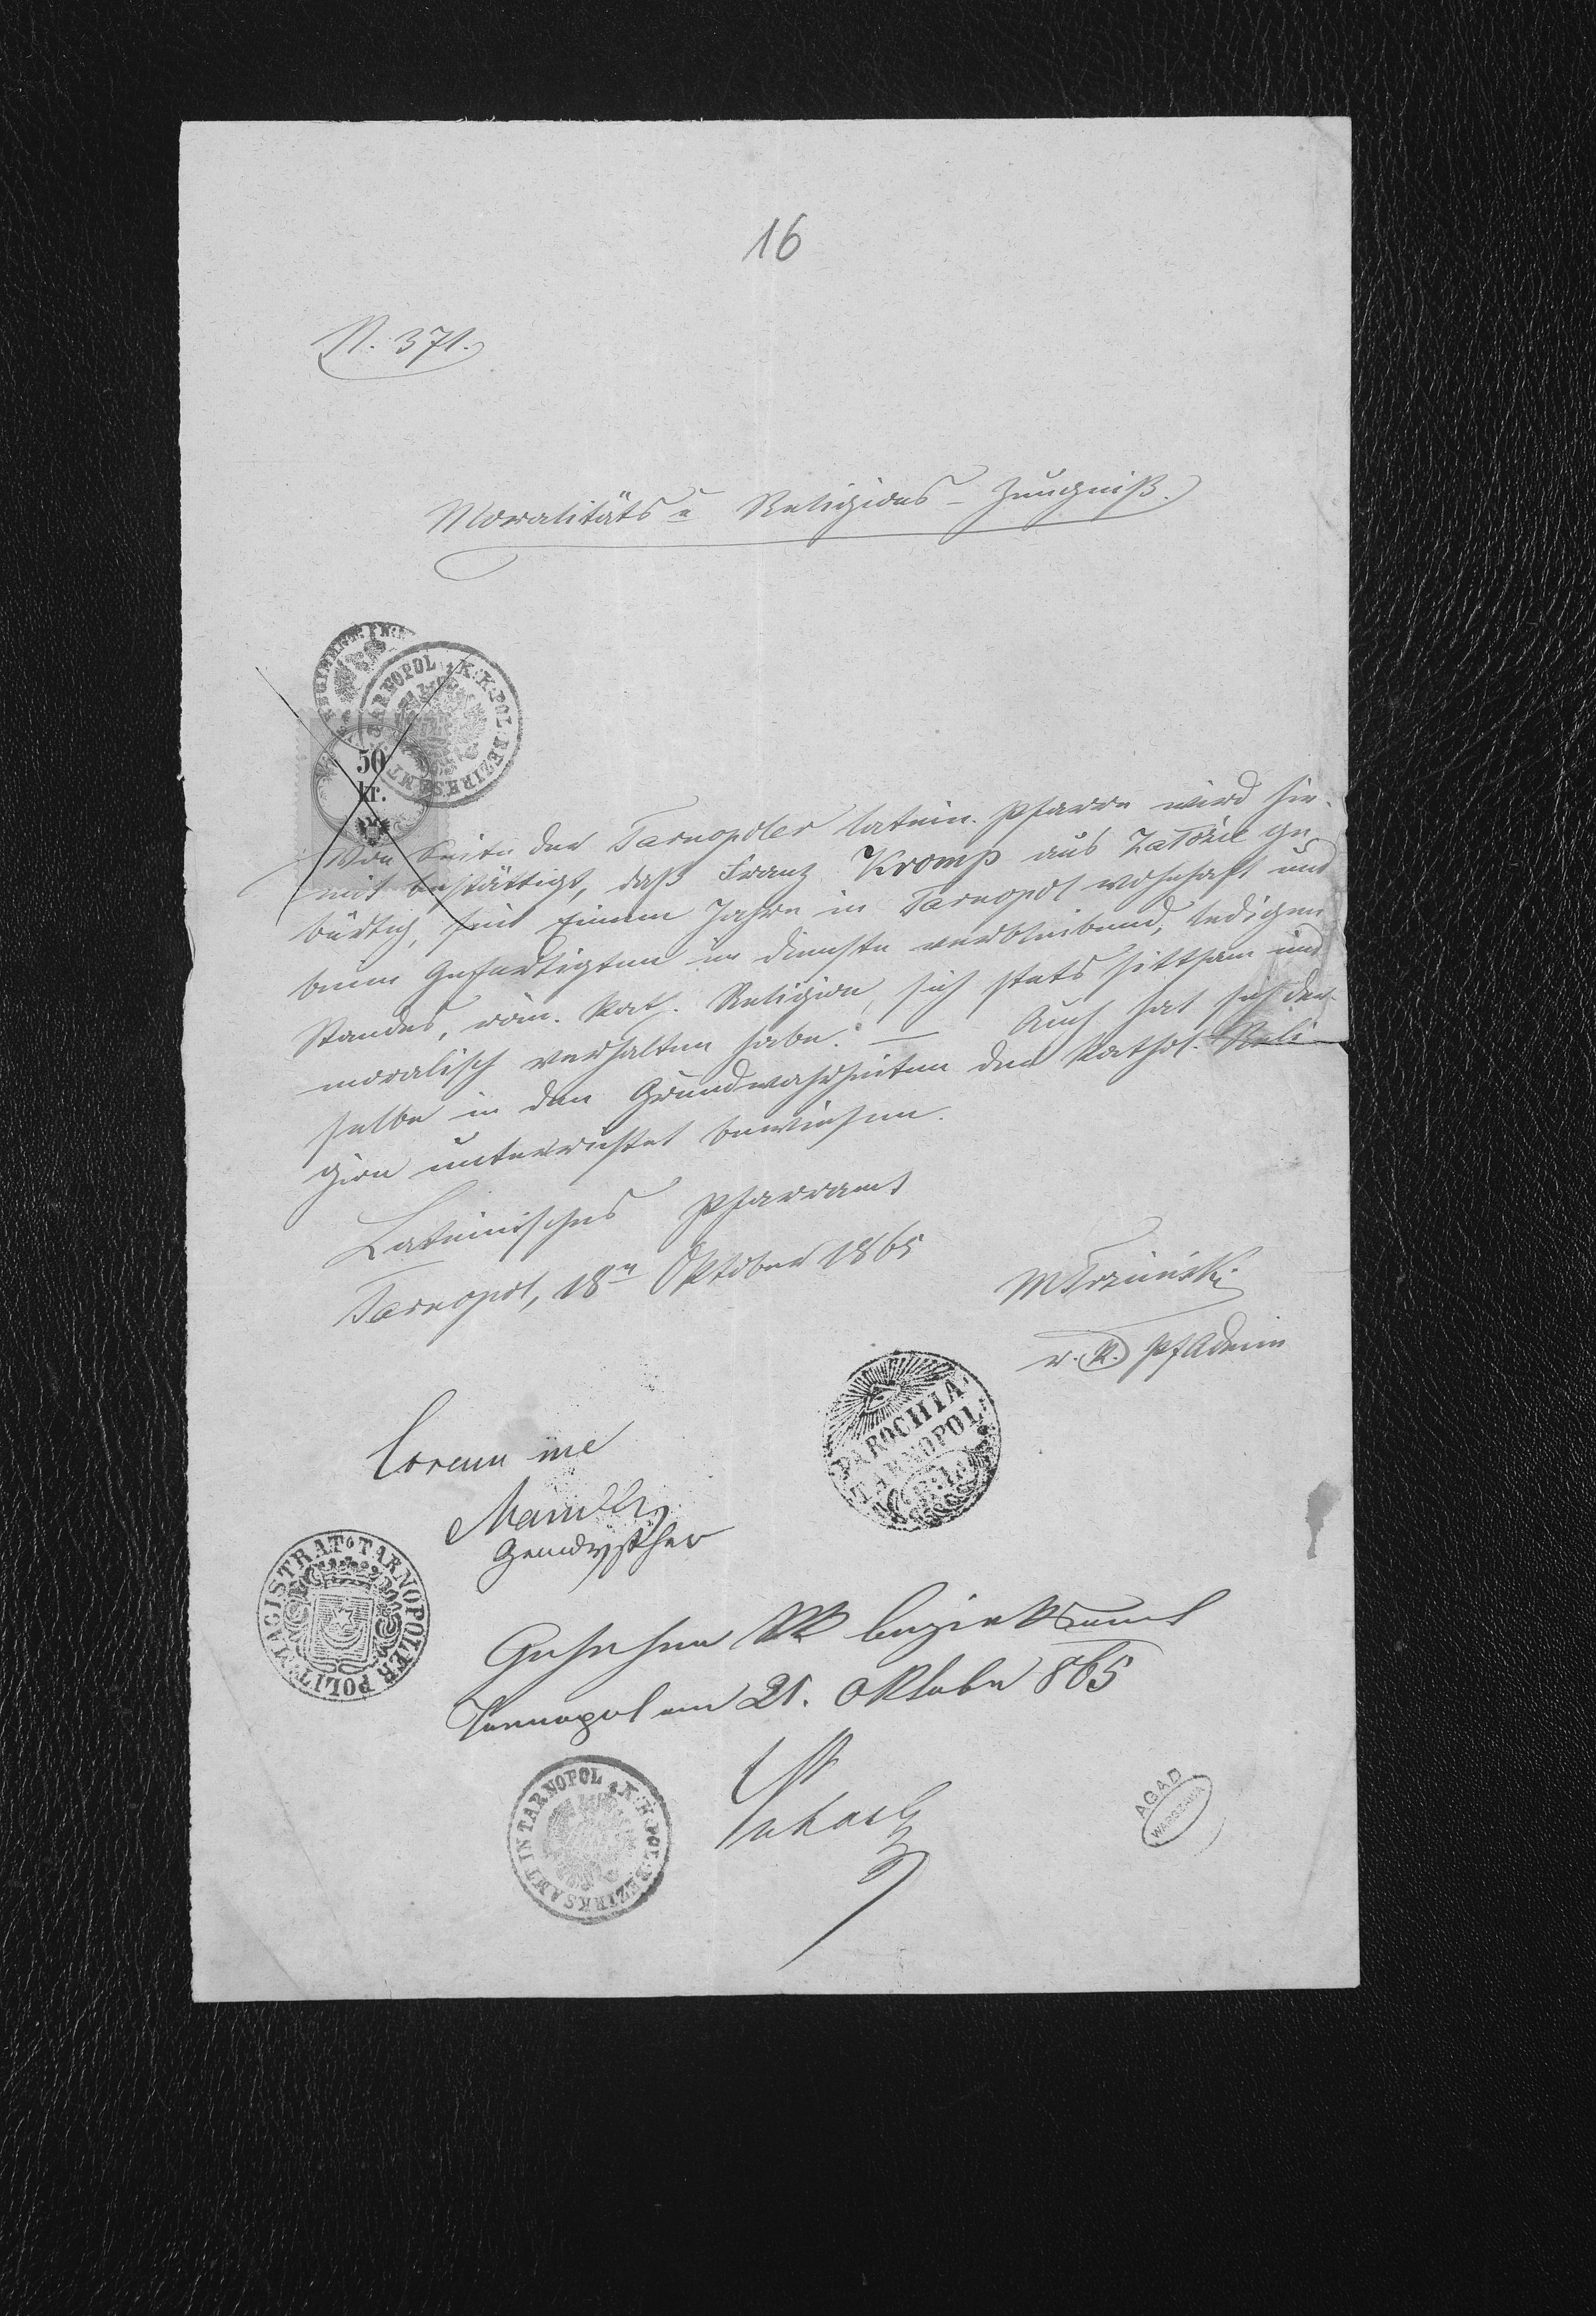 16
N. 371.
Moralitäts u Religions-Zeugniß.
TARNOPOL K.K. POL. BEZIRKSAMT
50
kr.
Von Seite der Tarnopoler latein. Pfarre wird hie-
mit bestättigt, daß Franz Kromp aus ge-
bürtig, seit Einem Jahre in Tarnopol wohnhaft und
beim Gefertigten im Dienste verbleibend, ledigen
Standes, röm. kath. Religion, sich stets sittsam und
moralisch verhalten habe. — Auch hat sich der-
selbe in den Grundwahrheiten der kathol. Reli-
gion unterrichtet bewiesen.
Lateinisches Pfarramt
Tarnopol, 18n Oktober 1865
r. k. PfAdmin
PAROCHIA
TARNOPOL
R: L:
Coram me
MAGISTRAT TARNOPOLER POLIT:
Gesehen KK Bezirksamt
Tarnopol am 21. Oktober 865
K:K: POL: BEZIRKSAMT IN TARNOPOL
AGAD
WARSZAWA